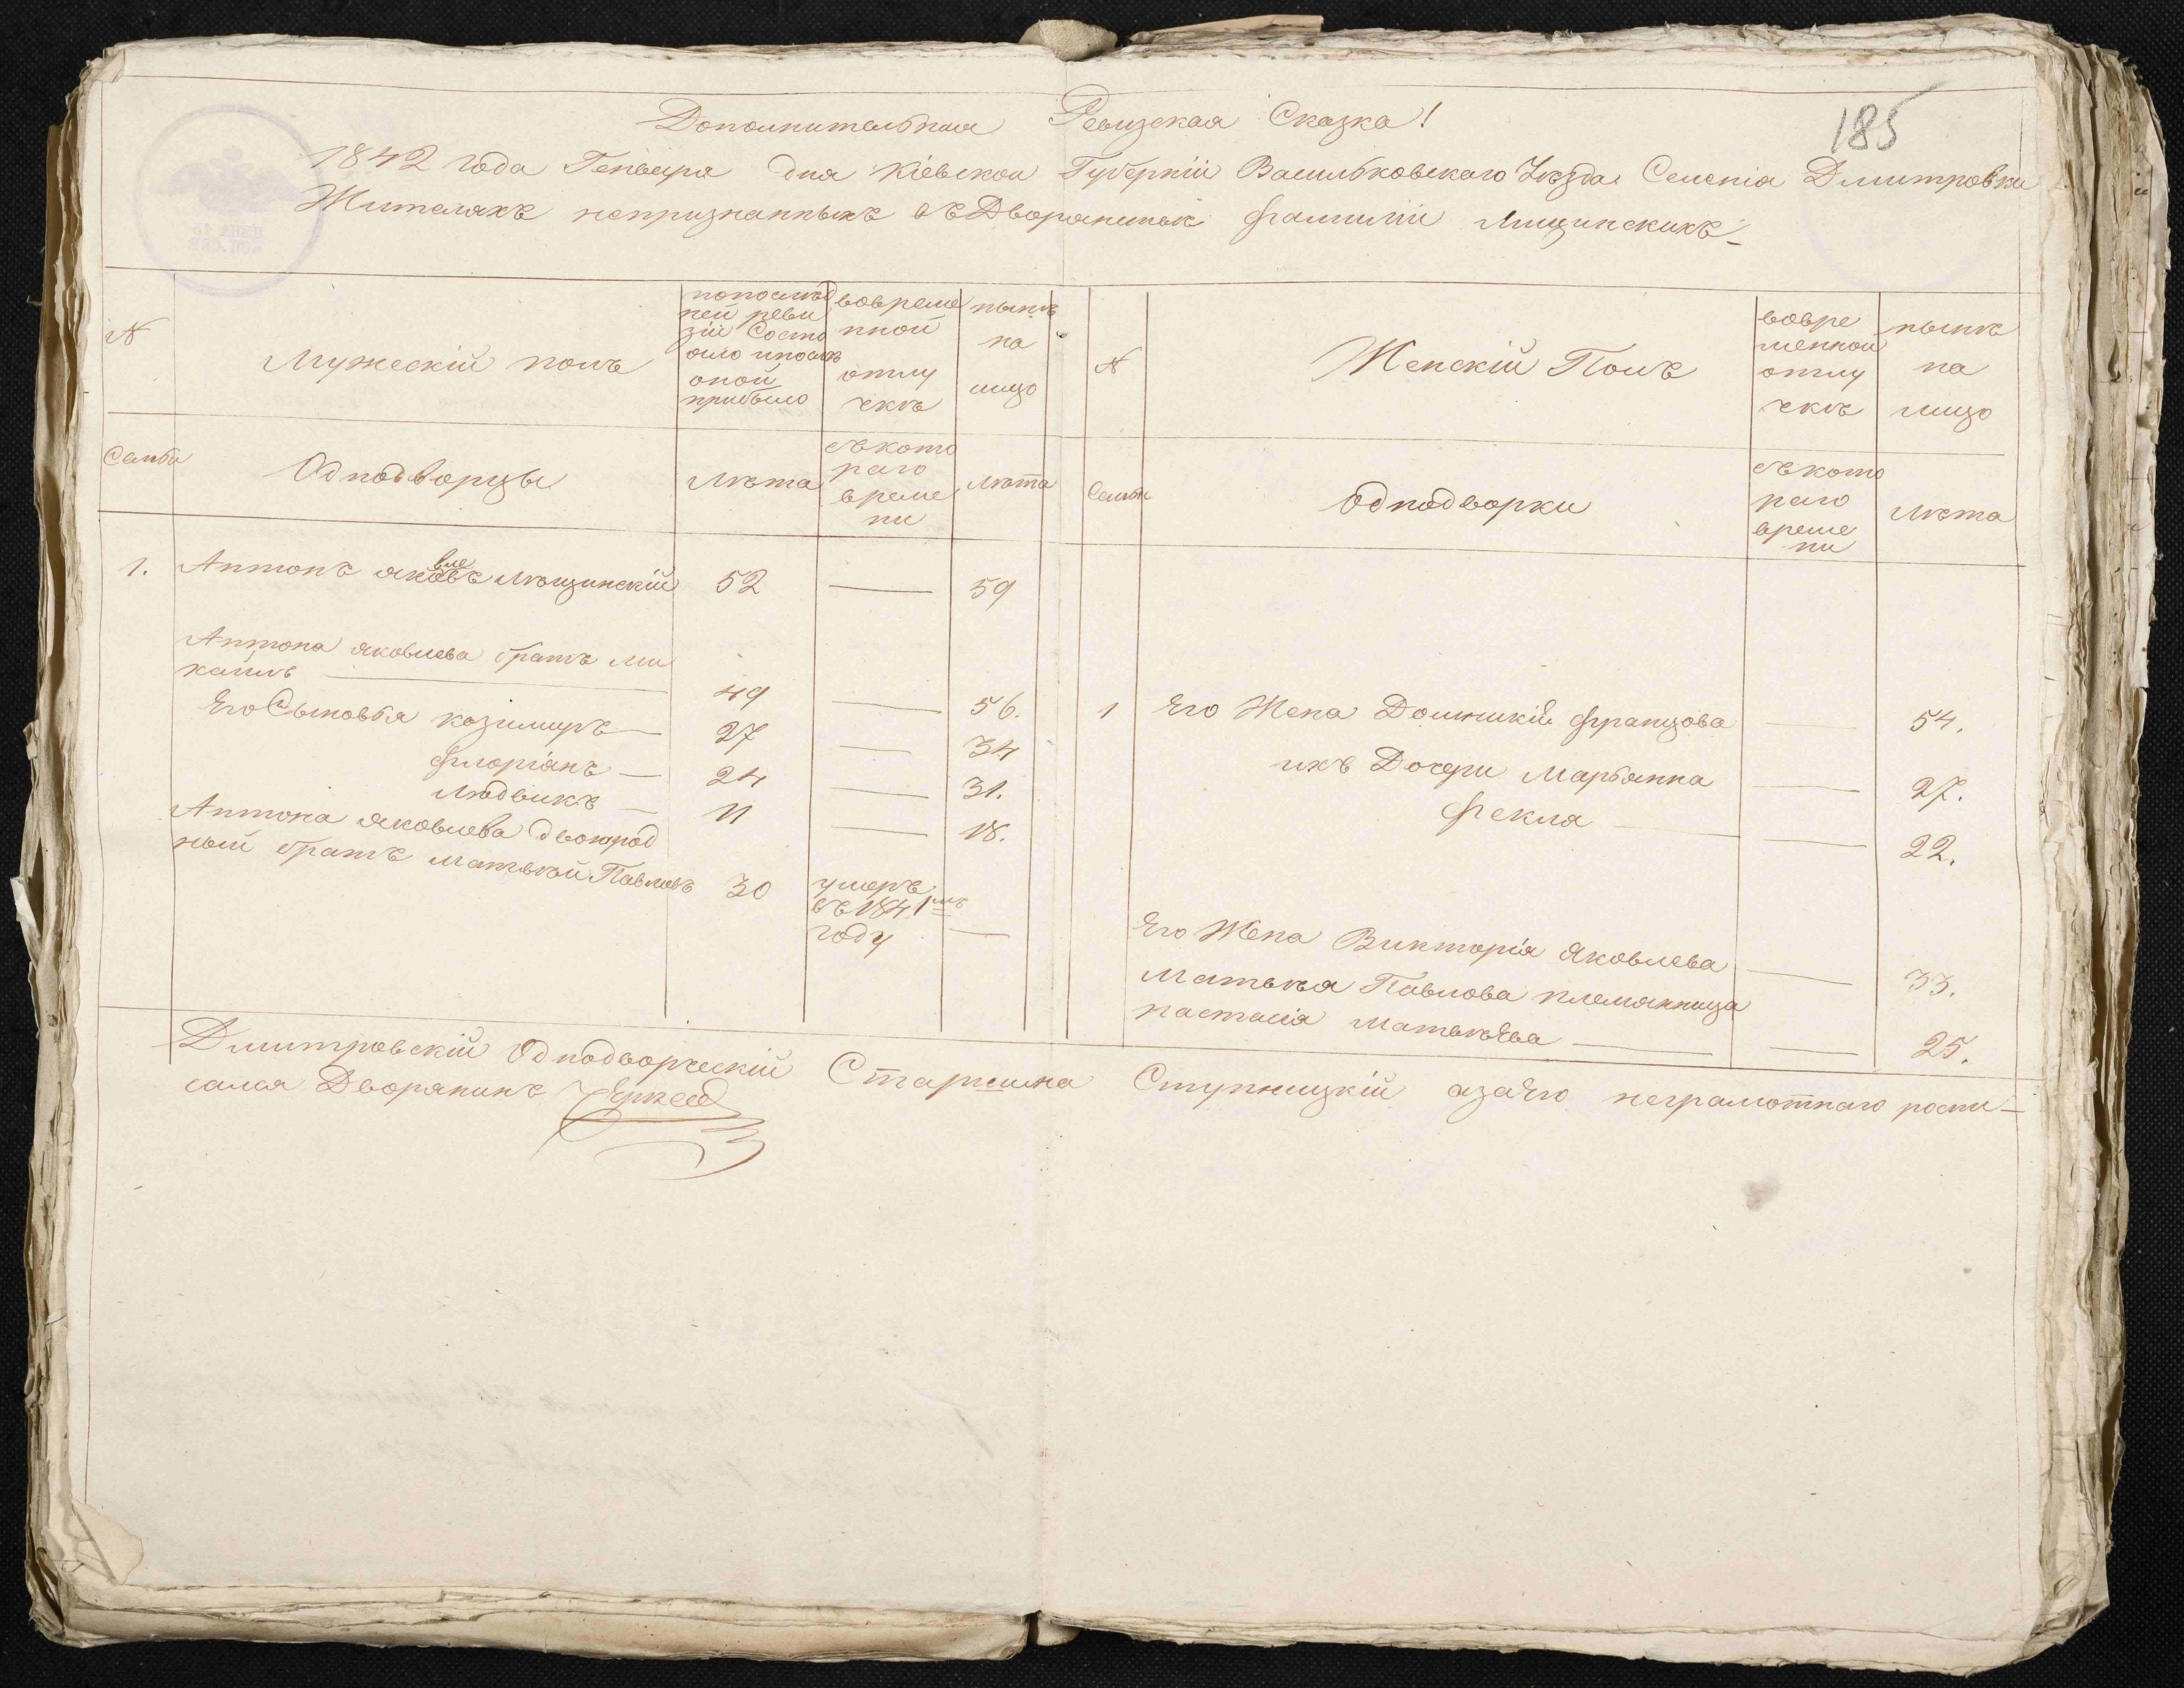 185
Дополнительная Ревизская Сказка!
1842 года Генваря дня Кіевской Губерніи Васильковскаго Уезда Селенія Дмитровки
Жителяхъ непризнанныхъ въ Дворянстве фамиліи Лищинскихъ
№
Мужескій полъ
попослед
ней реви
зіи Состо
яло и после
оной
прибыло
вовреме
нной
отлу
чкѣ
нынѣ
на
лицо
№
Женскій Полъ
вовре
менной
отлу
чкѣ
нынѣ
на
лицо
Семьи
Однодворцы
Лѣта
съ кото
раго
време
ни
Лѣта
Семьи
Однодворки
съ кото
раго
време
ни
Лѣта
1. Антонъ Яковлевъ Лѣщинскій 52 — 59
Антона Яковлева братъ Ми
хаилъ — 49 — 56.
1 Его Жена Доминикія францова — 54.
Его Сыновья Козимиръ — 27 — 34
ихъ Дочери Марьянна — 27.
флоріанъ — 24 — 31.
Фекла — 22.
Людвикъ — 11 — 18.
Антона Яковлева двоюрод
ный братъ Матвѣй Павловъ 30 умеръ
въ 1841мъ
году —
Его Жена Викторія Яковлева — 33.
Матвея Павлова племянница
Настасія Матвѣева — 25.
Дмитровскій Однодворческій Старшина Ступницкій а за его неграмотнаго роспи-
сался Дворянинъ